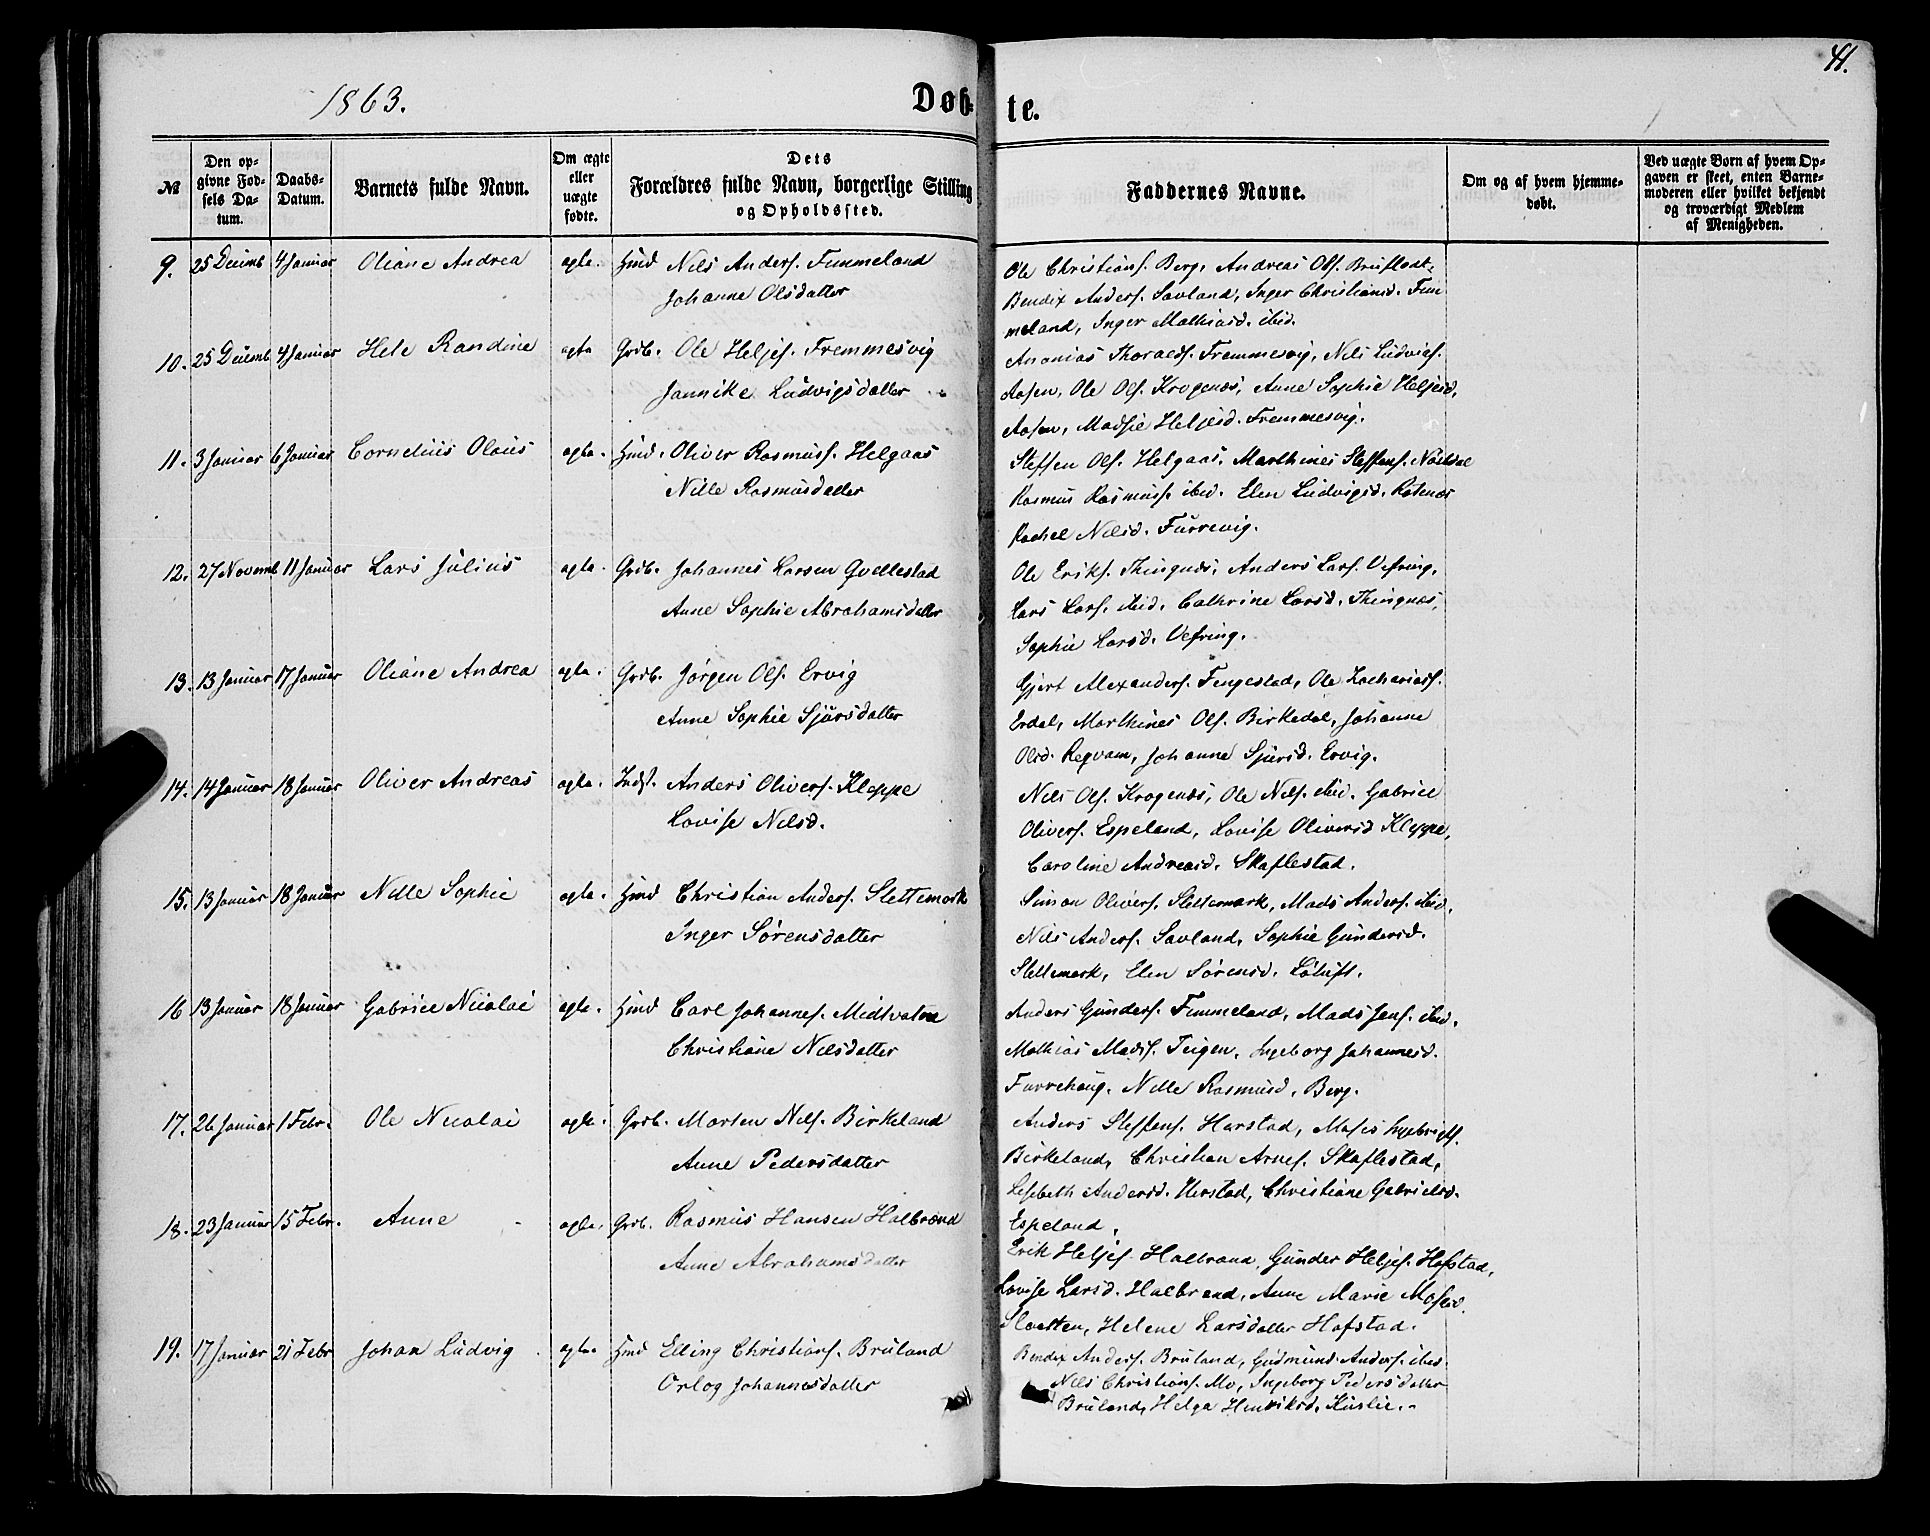 41.
1863.
Døb-
te.
№
Den op-
givne Fød-
sels Da-
tum.
Daabs-
Datum.
Barnets fulde Navn.
Om ægte
eller
uægte
fødte.
Dets
Forældres fulde Navn, borgerlige Stilling
og Opholdssted.
Faddernes Navne.
Om og af hvem hjemme-
døbt.
Ved uægte Børn af hvem Op-
gaven er skeet, enten Barne-
moderen eller hvilket bekjendt
og troværdigt Medlem
af Menigheden.
9. 25 Decemb 4 Januar Oliane Andrea ægte. Hmd Nils Anders. Fimmeland
Johanne Olsdatter
Ole Christians. Berg, Andreas Ols. Bruflodt,
Bendix Anders. Savland, Inger Christiansd. Fim
meland, Inger Mathiasd. ibid.
10. 25 Decemb 4 Januar Hele Randine ægte Grdb. Ole Heljes. Fremmesvig
Jannike Ludvigsdatter
Ananias Thoraeds. Fremmesvig, Nils Ludvigs.
Aasen, Ole Ols. Krogenæs, Anne Sophie Heljesd.
Aasen, Madsie Heljesd. Fremmesvig.
11. 3 Januar 6 Januar Cornelius Olaus ægte. Hmd. Oliver Rasmuss. Helgaas
Nille Rasmusdatter
Steffen Ols. Helgaas, Marthines Steffens. Naustdal
Rasmus Rasmuss. ibid. Elen Ludvigsd. Rotenæs
Rachel Nilsd. Furrevig.
12. 27 Novemb 11 Januar Lars Julius ægte. Grdb. Johannes Larsen Gvellestad
Anne Sophie Abrahamsdatter
Ole Eriks. Thingnæs, Anders Lars. Vefring,
Lars Lars. ibid. Cathrine Larsd. Thingnæs,
Sophie Larsd. Vefring.
13. 13 Januar 17 Januar Oliane Andrea ægte. Grdb. Jørgen Ols. Ervig
Anne Sophie Sjursdatter
Gjert Alexanders. Fengestad, Ole Zacharias.
Erdal, Marthines Ols. Birkedal, Johanne
Olsd. Reqvam, Johanne Sjursd. Ervig.
14. 14 Januar 18 Januar Oliver Andreas ægte. Inds. Anders Olivers. Kleppe
Lovise Nilsd.
Nils Ols. Krogenæs, Ole Nils. ibid. Gabriel
Olivers. Espeland, Lovise Oliversd Kleppe,
Caroline Andreasd. Skaflestad.
15. 13 Januar 18 Januar Nille Sophie ægte. Hmd Christian Anders. Slettemark
Inger Sørensdatter
Simon Olivers. Slettemark, Mads Anders. ibid.
Nils Anders. Savland, Sophie Gundersd.
Slettemark, Elen Sørensd. Løtuft.
16 13 Januar 18 Januar Gabriel Nicolai ægte. Hmd Carl Johannes. Midtvaten
Christiane Nilsdatter
Anders Gunders. Fimmeland, Mads Jens. ibid.
Mathias Mads. Teigen, Ingeborg Johannesd.
Furrehaug. Nille Rasmusd. Berg.
17. 26 Januar 1 Febr. Ole Nicolai ægte. Grdb. Morten Nils. Birkeland
Anne Pedersdatter
Anders Steffens. Herstad, Moses Ingebrigts.
Birkeland, Christian Arnes. Skaflestad,
Lisbeth Andersd. Herstad, Christiane Gabrielsd.
Espeland.
18. 23 Januar 15 Febr. Anne ægte. Grdb. Rasmus Hansen Halbrænd
Anne Abrahamsdatter
Erik Heljes. Halbrænd, Gunder Heljes. Hofstad,
Lovise Larsd. Halbrænd, Anne Marie Mosesd.
Slaatten, Helene Larsdatter Hofstad.
19. 17 Januar 21 Febr Johan Ludvig ægte Hmd Elling Christians. Bruland
Orlog Johannesdatter
Bendix Anders. Bruland, Gudmund Anders. ibid.
Nils Christians. Mo, Ingeborg Pedersdatter
Bruland, Helga Henriksd. Kuslie.